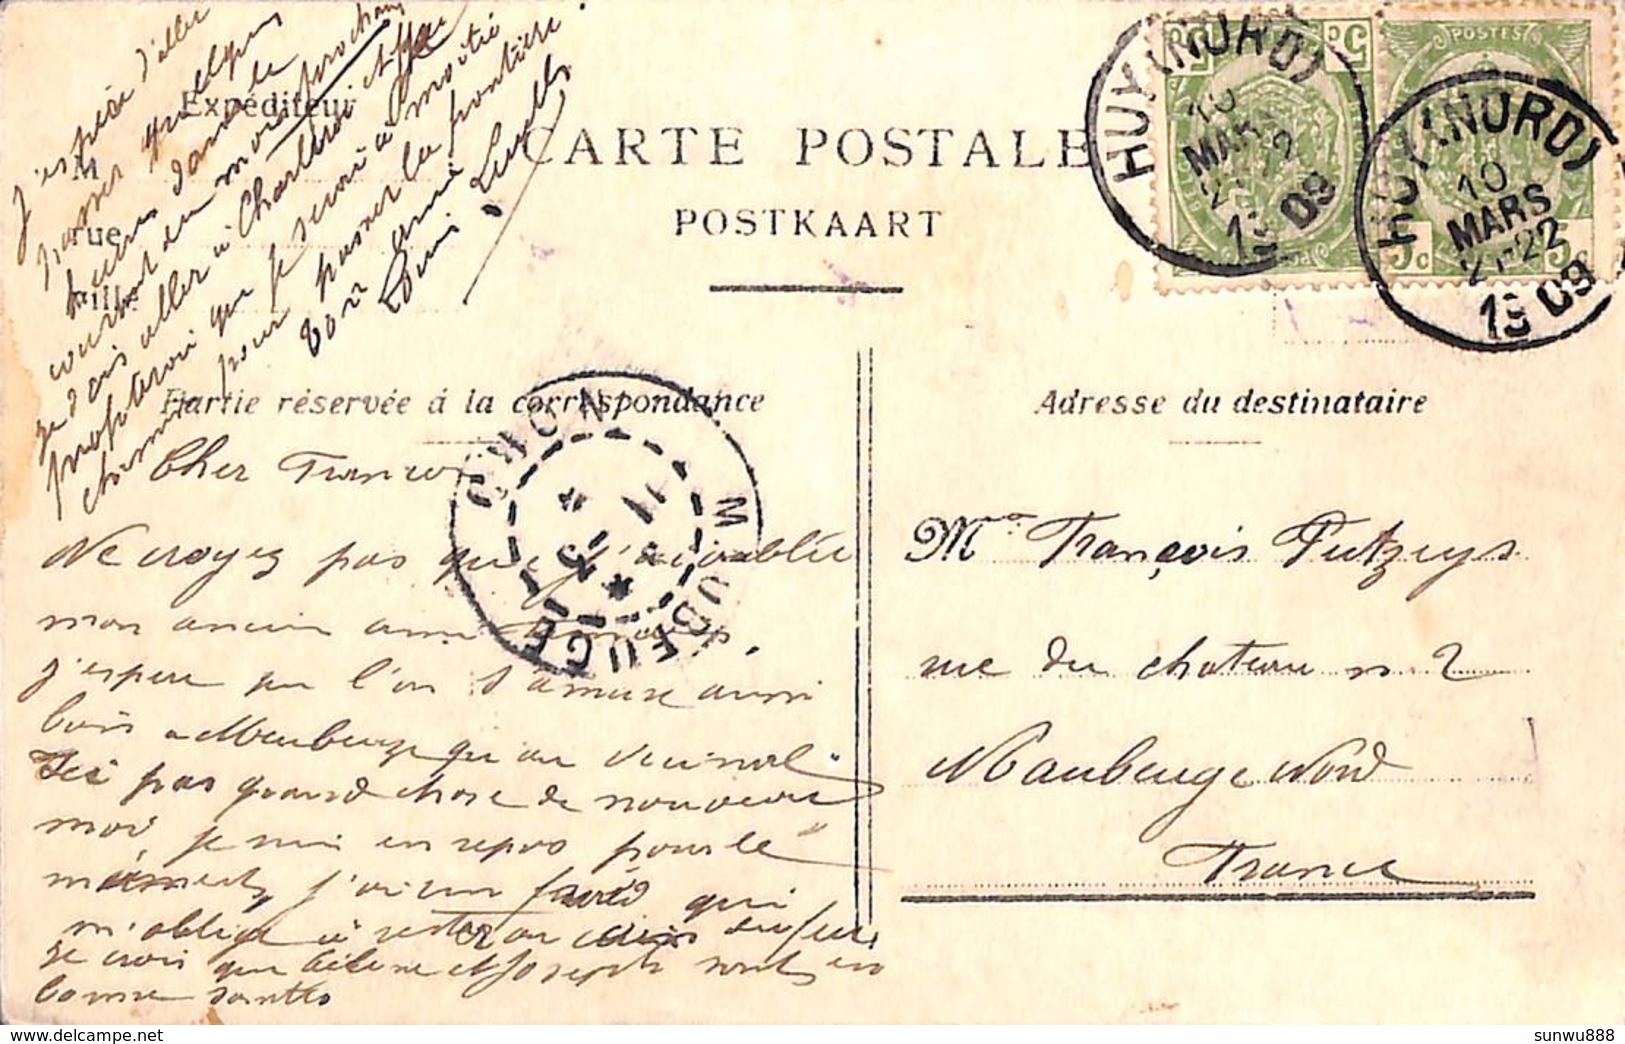 CARTE POSTALE
POSTKAART
Expéditeur
M
rue
Ville
Partie réservée á la correspondance
Adresse du destinataire
HUY (NORD)
10
MARS
1909
5c
HUY (NORD)
10
MARS
21-22
1909
POSTES
5c
MAUBEUGE
NORD
11
Cher François
Ne croyez pas que j'ai oublié
mon ancien ami François.
j'espère que l'on s'amuse aussi
bien a Meubeuge qu'au
Ici pas grand chose de nouveau
moi, je suis en repos pour le
moment, j'ai un froid qui
m'oblige à rester au coin du feu.
Je crois que Hélène et Joseph sont en
bonne santée
J'espère d'aller
passer quelques
heures dans le
courant du mois prochain
je dois aller à Charleroi et je
profiterai que je serai à moitié
chemin pour passer la frontière
Ton ami
Louis
Mr François Putzeys
rue du chateau n 2
Maubeuge Nord
France
sunwu888